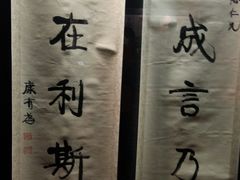 仁兄
成言乃
在利斯
康有為